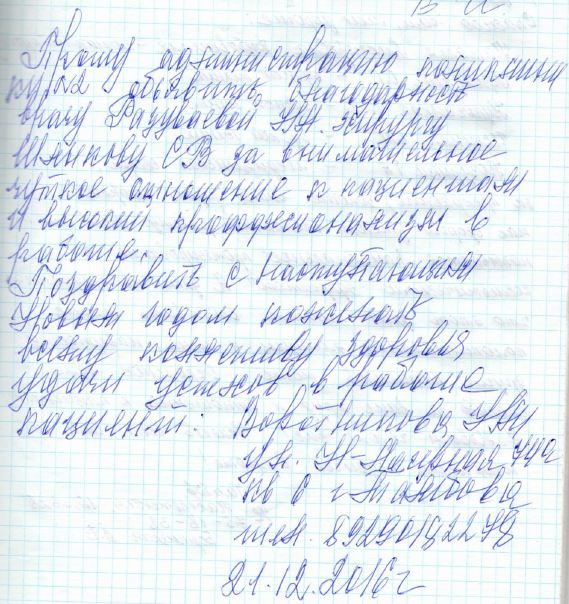 Прошу администрацию поликлини
ку №2 объявить благодарность
врачу Разуваевой НН. хирургу
Шанкову СВ за внимательное
чуткое отношение к пациентам
и высокий профессионализм в
работе.
Поздравить с наступающим
Новым годом пожелать
всему коллективу здоровья
удачи успехов в работе
пациент: Воротникова НИ
ул. Н-
кв 8 г Тамбова
тел.
21.12.2016г